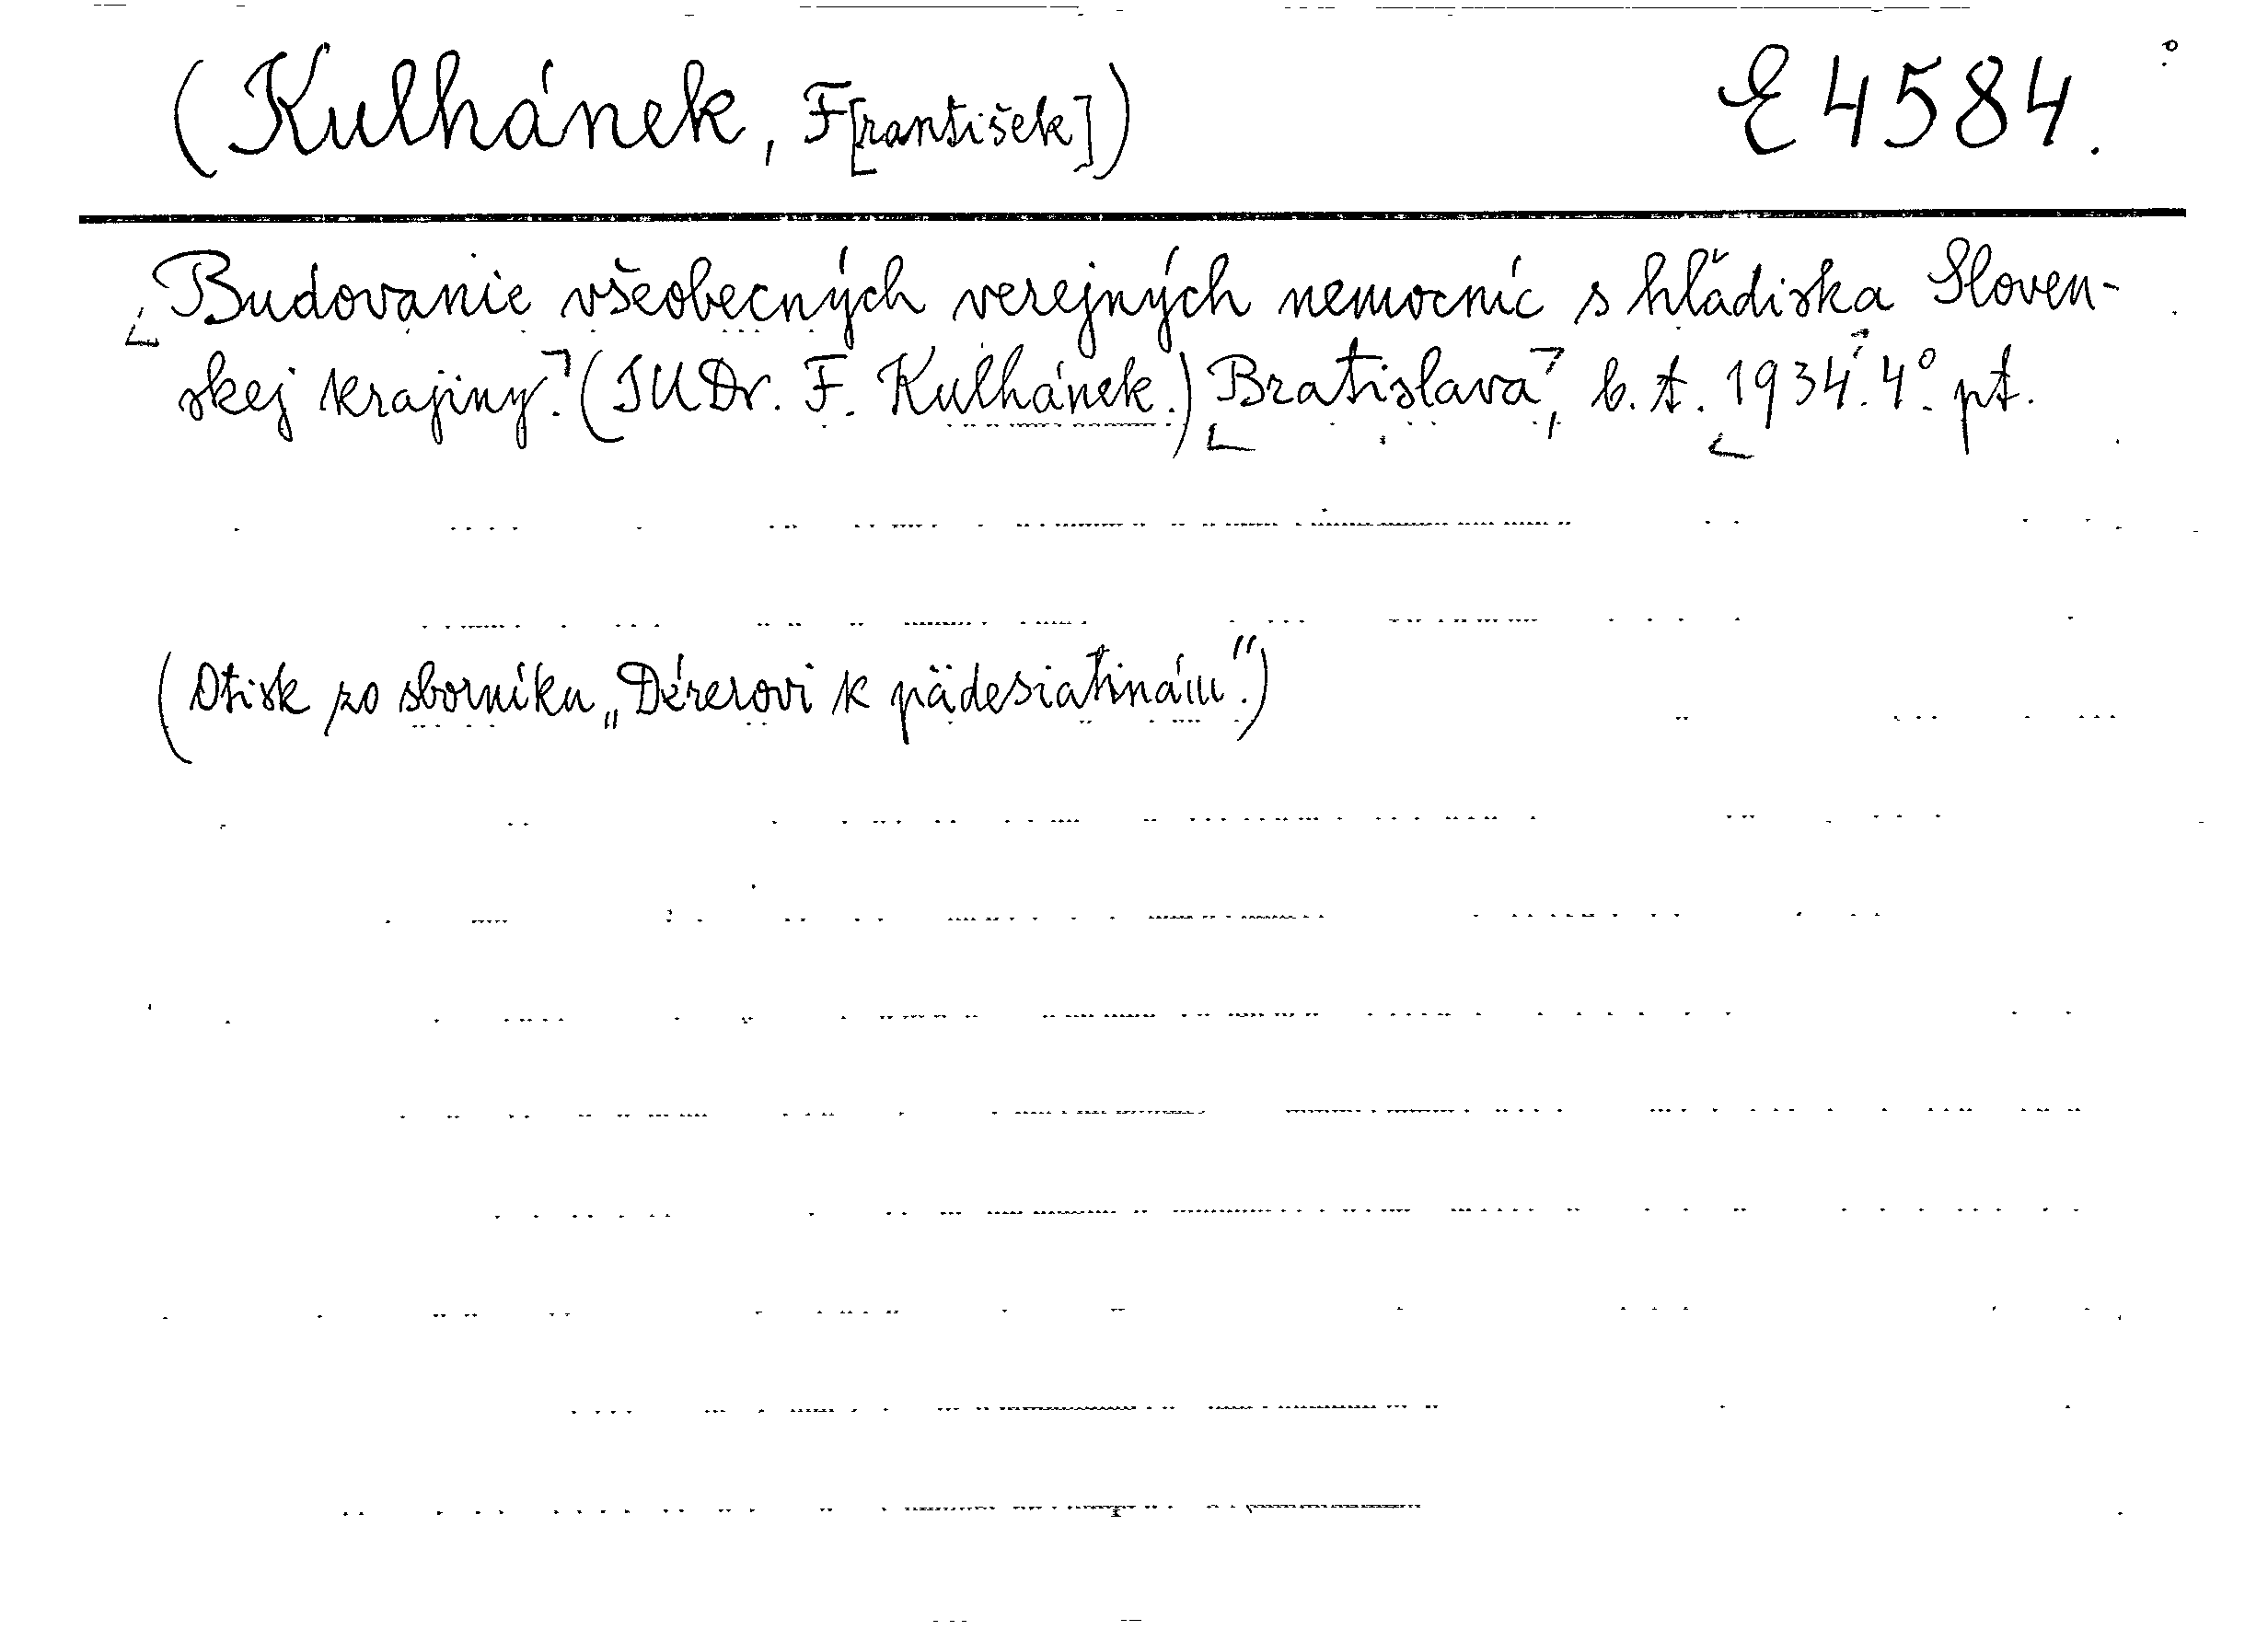 (Kulhánek, F[rantišek]) E 4584.
⌞Budovanie všeobecných verejných nemocníc s hľadiska Sloven-
skej krajiny.⌝ (JUDr. F. Kulhánek.) ⌞Bratislava⌝, b. t. ⌞1934⌝. 4°. pt.
(Otisk zo sborníku „Dérerovi k pädesiatinám“.)